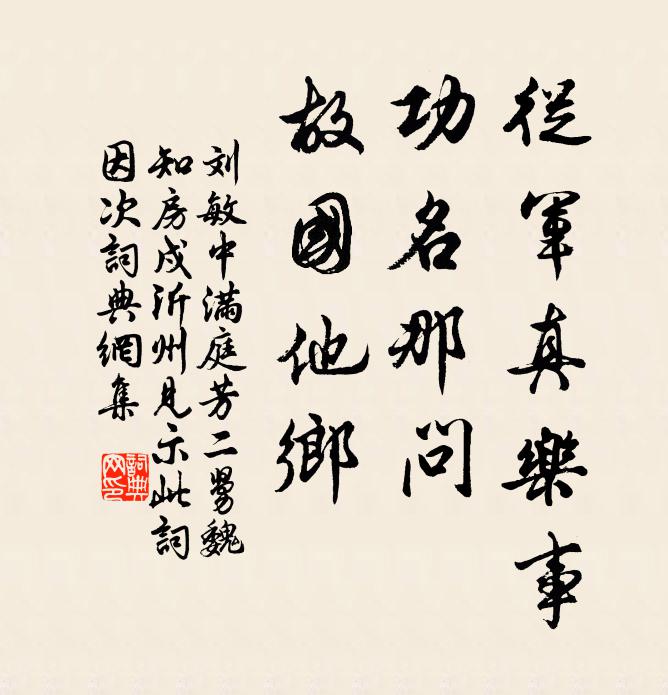 從軍真樂事
功名那問
故國他鄉
刘敏中滿庭芳二舅魏
知房戍沂州見示此詞
因次詞典網集
詞典
网印